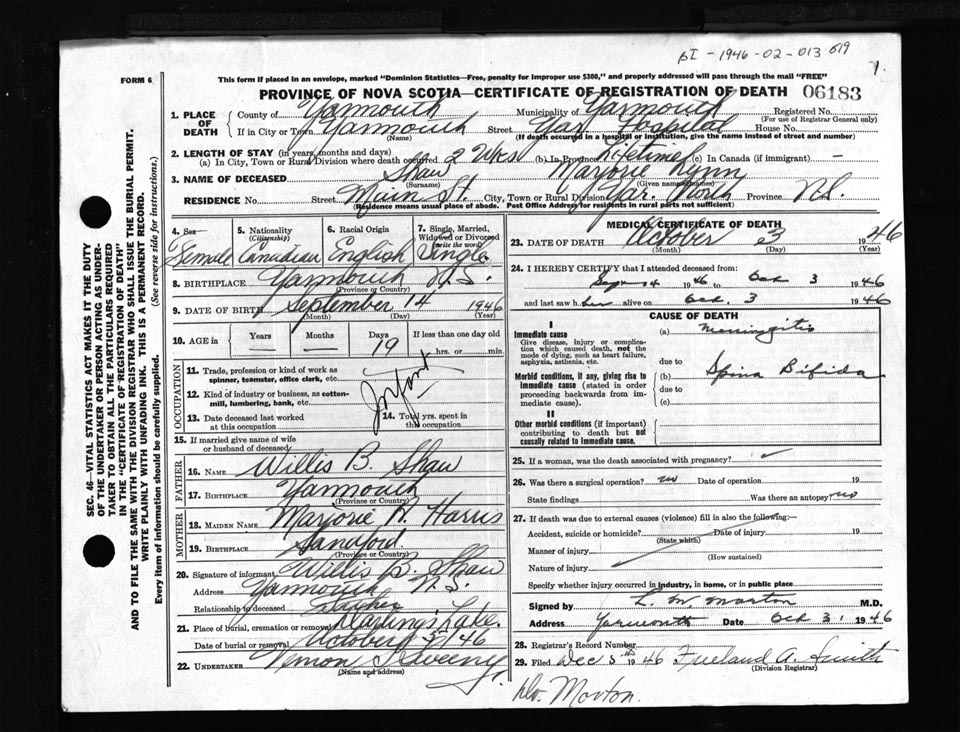 pI - 1946-02-013 019
1.
FORM 6
This form if placed in an envelope, marked "Dominion Statistics—Free, penalty for improper use $300," and properly addressed will pass through the mail "FREE"
PROVINCE OF NOVA SCOTIA—CERTIFICATE OF REGISTRATION OF DEATH 06183
1. PLACE OF DEATH
County of Yarmouth Municipality of Yarmouth Registered No.
(For use of Registrar General only)
If in City or Town Yarmouth Street Yar Hospital House No.
(Name) (If death occurred in a hospital or institution, give the name instead of street and number)
2. LENGTH OF STAY (in years, months and days)
(a) In City, Town or Rural Division where death occurred 2 Wks (b) In Province Lifetime (c) In Canada (if immigrant) —
3. NAME OF DECEASED Shaw Marjorie Lynn
(Surname) (Given name or names)
RESIDENCE No. Street Main St. City, Town or Rural Division Yar. North Province N.S.
(Residence means usual place of abode. Post Office Address for residents in rural parts not sufficient)
4. Sex Female
5. Nationality (Citizenship) Canadian
6. Racial Origin English
7. Single, Married, Widowed or Divorced (write the word) Single
8. BIRTHPLACE Yarmouth N.S.
(Province or Country)
9. DATE OF BIRTH September 14 1946
(Month) (Day) (Year)
10. AGE in Years Months Days 19 If less than one day old
hrs. or min.
OCCUPATION
11. Trade, profession or kind of work as spinner, teamster, office clerk, etc.
12. Kind of industry or business, as cotton-mill, lumbering, bank, etc.
Infant
13. Date deceased last worked at this occupation
14. Total yrs. spent in this occupation
15. If married give name of wife or husband of deceased
FATHER
16. NAME Willis B. Shaw
17. BIRTHPLACE Yarmouth
(Province or Country)
MOTHER
18. MAIDEN NAME Marjorie A. Harris
19. BIRTHPLACE Sandford
(Province or Country)
20. Signature of informant Willis B. Shaw
Address Yarmouth N.S.
Relationship to deceased Father
21. Place of burial, cremation or removal Lake.
Date of burial or removal October 3/46
22. UNDERTAKER Vernon Sweeny.
(Name and address)
MEDICAL CERTIFICATE OF DEATH
23. DATE OF DEATH October 3 1946
(Month) (Day) (Year)
24. I HEREBY CERTIFY that I attended deceased from:
Sept 14 1946 to Oct 3 1946
and last saw her alive on Oct. 3 1946
CAUSE OF DEATH
I
Immediate cause (a) Meningitis
Give disease, injury or complication which caused death, not the mode of dying, such as heart failure, asphyxia, asthenia, etc.
due to
Morbid conditions, if any, giving rise to immediate cause (stated in order proceeding backwards from immediate cause).
(b) Spina Bifida
due to
(c)
II
Other morbid conditions (if important) contributing to death but not causally related to immediate cause.
25. If a woman, was the death associated with pregnancy?
26. Was there a surgical operation? no Date of operation 19
State findings Was there an autopsy? no
27. If death was due to external causes (violence) fill in also the following:—
Accident, suicide or homicide? Date of injury 19
(State which)
Manner of injury
(How sustained)
Nature of injury
Specify whether injury occurred in industry, in home, or in public place
Signed by L. M. Morton M.D.
Address Yarmouth Date Oct 3 1946
28. Registrar's Record Number
29. Filed Dec 5th 1946 Freeland A. Smith
(Division Registrar)
Dr. Morton.
SEC. 46—VITAL STATISTICS ACT MAKES IT THE DUTY
OF THE UNDERTAKER OR PERSON ACTING AS UNDER-
TAKER TO OBTAIN ALL THE PARTICULARS REQUIRED
IN THE "CERTIFICATE OF REGISTRATION OF DEATH"
AND TO FILE THE SAME WITH THE DIVISION REGISTRAR WHO SHALL ISSUE THE BURIAL PERMIT.
WRITE PLAINLY WITH UNFADING INK. THIS IS A PERMANENT RECORD.
Every item of information should be carefully supplied. (See reverse side for instructions.)